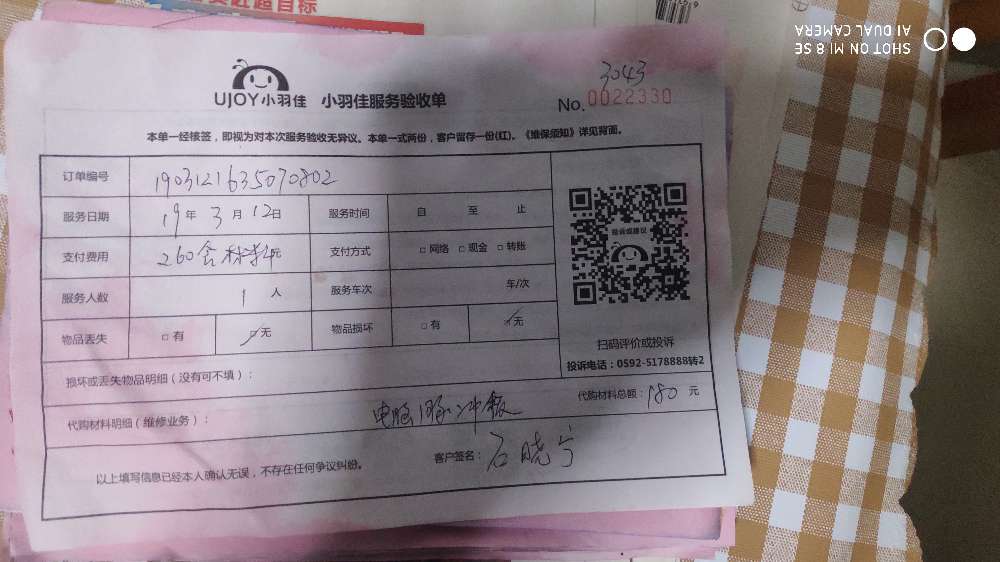 SHOT ON MI 8 SE
AI DUAL CAMERA
UJOY小羽佳 小羽佳服务验收单
3043
No. 0022330
本单一经核签，即视为对本次服务验收无异议。本单一式两份，客户留存一份(红)。《维保须知》详见背面。
订单编号 1903121635070802
服务日期 19年3月12日 服务时间 自 至 止
支付费用 260含材料元 支付方式 □网络 □现金 □转账
服务人数 1人 服务车次 车/次
物品丢失 □有 ☑无 物品损坏 □有 ☑无
扫码评价或投诉
投诉电话：0592-5178888转2
损坏或丢失物品明细（没有可不填）：
代购材料明细（维修业务）： 电脑脉冲板 代购材料总额：180元
以上填写信息已经本人确认无误，不存在任何争议纠纷。 客户签名：石晓宁